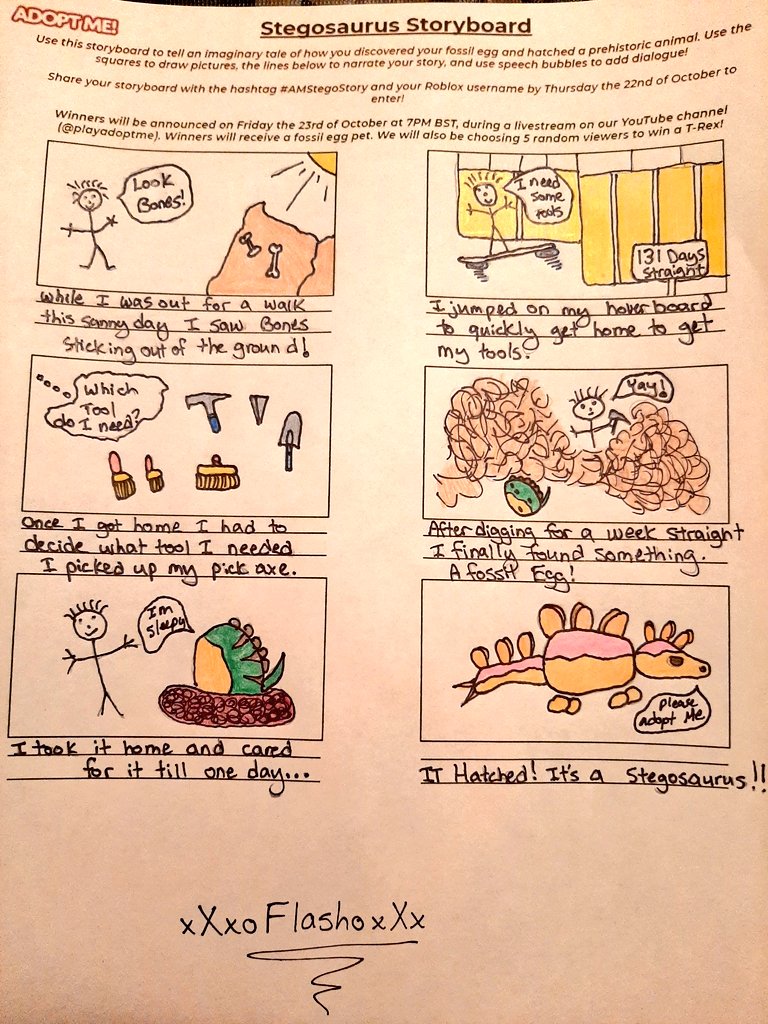 ADOPT ME!
Stegosaurus Storyboard
Use this storyboard to tell an imaginary tale of how you discovered your fossil egg and hatched a prehistoric animal. Use the
squares to draw pictures, the lines below to narrate your story, and use speech bubbles to add dialogue!
Share your storyboard with the hashtag #AMStegoStory and your Roblox username by Thursday the 22nd of October to
enter!
Winners will be announced on Friday the 23rd of October at 7PM BST, during a livestream on our YouTube channel
(@playadoptme). Winners will receive a fossil egg pet. We will also be choosing 5 random viewers to win a T-Rex!
Look
Bones!
while I was out for a walk
this sunny day I saw Bones
sticking out of the ground!
I need
some
tools
131 Days
straight
I jumped on my hoverboard
to quickly get home to get
my tools.
Which
Tool
do I need?
Once I got home I had to
decide what tool I needed
I picked up my pick axe.
Yay!
After digging for a week straight
I finally found something.
A fossil Egg!
Im
Sleepy
I took it home and cared
for it till one day...
Please
adopt Me
IT Hatched! It's a Stegosaurus!!
xXxoFlashoxXx